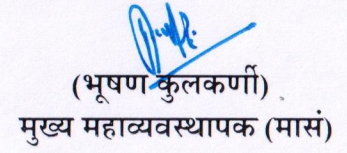 (भूषण कुलकर्णी)
मुख्य महाव्यवस्थापक (मासं)